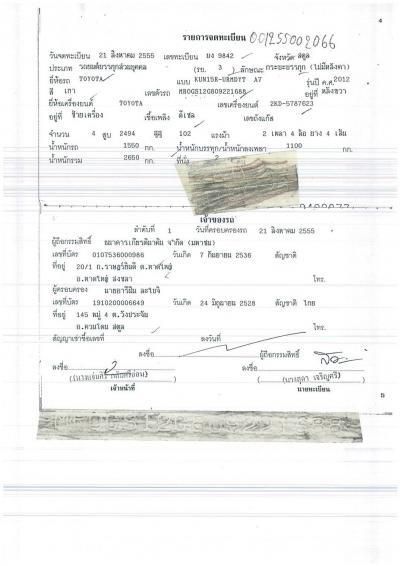 4
รายการจดทะเบียน 001255002066
วันจดทะเบียน 21 สิงหาคม 2555 เลขทะเบียน บง 9842 จังหวัด สตูล
ประเภท รถยนต์บรรทุกส่วนบุคคล (รย. 3 ) ลักษณะ กระบะบรรทุก (ไม่มีหลังคา)
ยี่ห้อรถ TOYOTA แบบ KUN15R-URMDYT A7 รุ่นปี ค.ศ.2012
สี เทา เลขตัวรถ อยู่ที่
ยี่ห้อเครื่องยนต์ TOYOTA เลขเครื่องยนต์ 2KD-5787623
อยู่ที่ ซ้ายเครื่อง เชื้อเพลิง ดีเซล เลขถังแก๊ส
จำนวน 4 สูบ 2494 ซีซี 102 แรงม้า 2 เพลา 4 ล้อ ยาง 4 เส้น
น้ำหนักรถ 1550 กก. น้ำหนักบรรทุก/น้ำหนักลงเพลา 1100 กก.
น้ำหนักรวม 2650 กก. ที่นั่ง 2
เจ้าของรถ
ลำดับที่ 1 วันที่ครอบครองรถ 21 สิงหาคม 2555
ผู้ถือกรรมสิทธิ์ ธนาคารเกียรตินาคิน จำกัด (มหาชน)
เลขที่บัตร 0107536000986 วันเกิด 7 กันยายน 2536 สัญชาติ
ที่อยู่ 20/1 ถ.ราษฎร์ยินดี ต.หาดใหญ่
อ.หาดใหญ่ สงขลา โทร.
ผู้ครอบครอง
เลขที่บัตร 1910200006649 วันเกิด 24 มิถุนายน 2528 สัญชาติ ไทย
ที่อยู่ 145 หมู่ 4 ต.วังประจัน
อ.ควนโดน สตูล โทร.
สัญญาเช่าซื้อเลขที่ ลงวันที่
ลงชื่อ ผู้ถือกรรมสิทธิ์
ลงชื่อ ลงชื่อ
(นางสุดา เจริญศรี)
เจ้าหน้าที่ นายทะเบียน
5